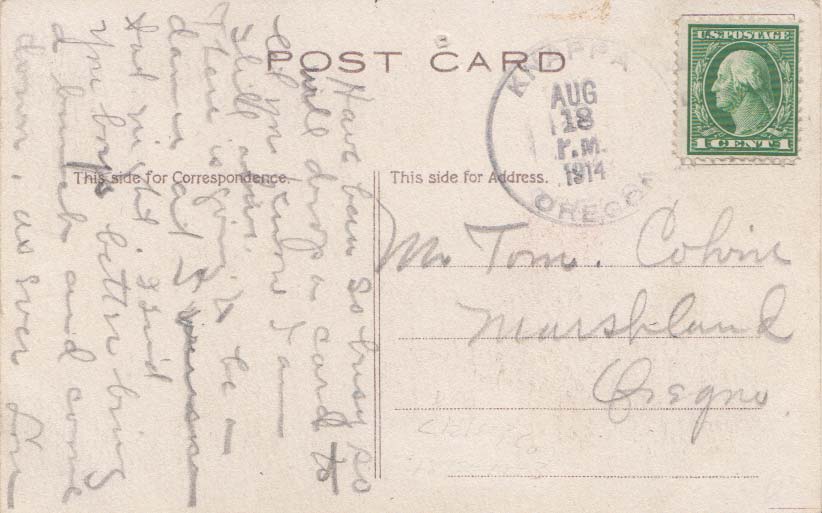 POST CARD
This side for Correspondence.
This side for Address.
U.S. POSTAGE
1 CENT 1
KNAPPA
AUG
18
P.M.
1914
OREGON
Mr Tom. Colvin
Marshland
Oregno.
Have been so busy so
will drop a card to
let you know I am
still alive.
There is going to be a
dance at
Sat night 22nd
You boys better bring
a bunch and come
down, as ever